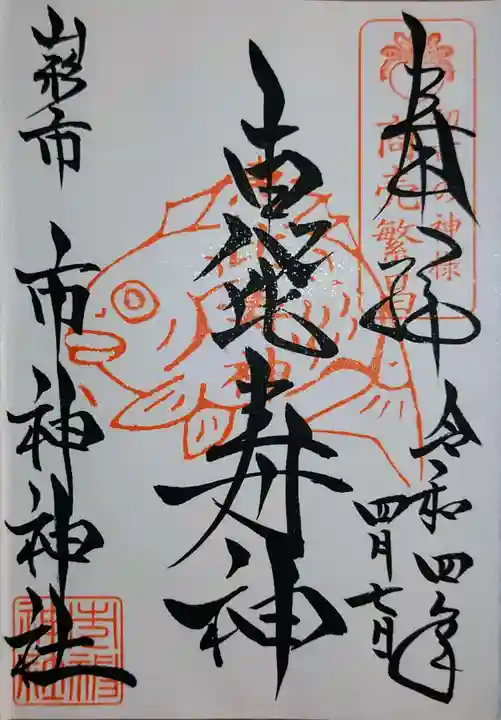 奉拝
令和四年
四月七日
初市の神様
商売繁昌
恵比寿神
山形市
市神神社